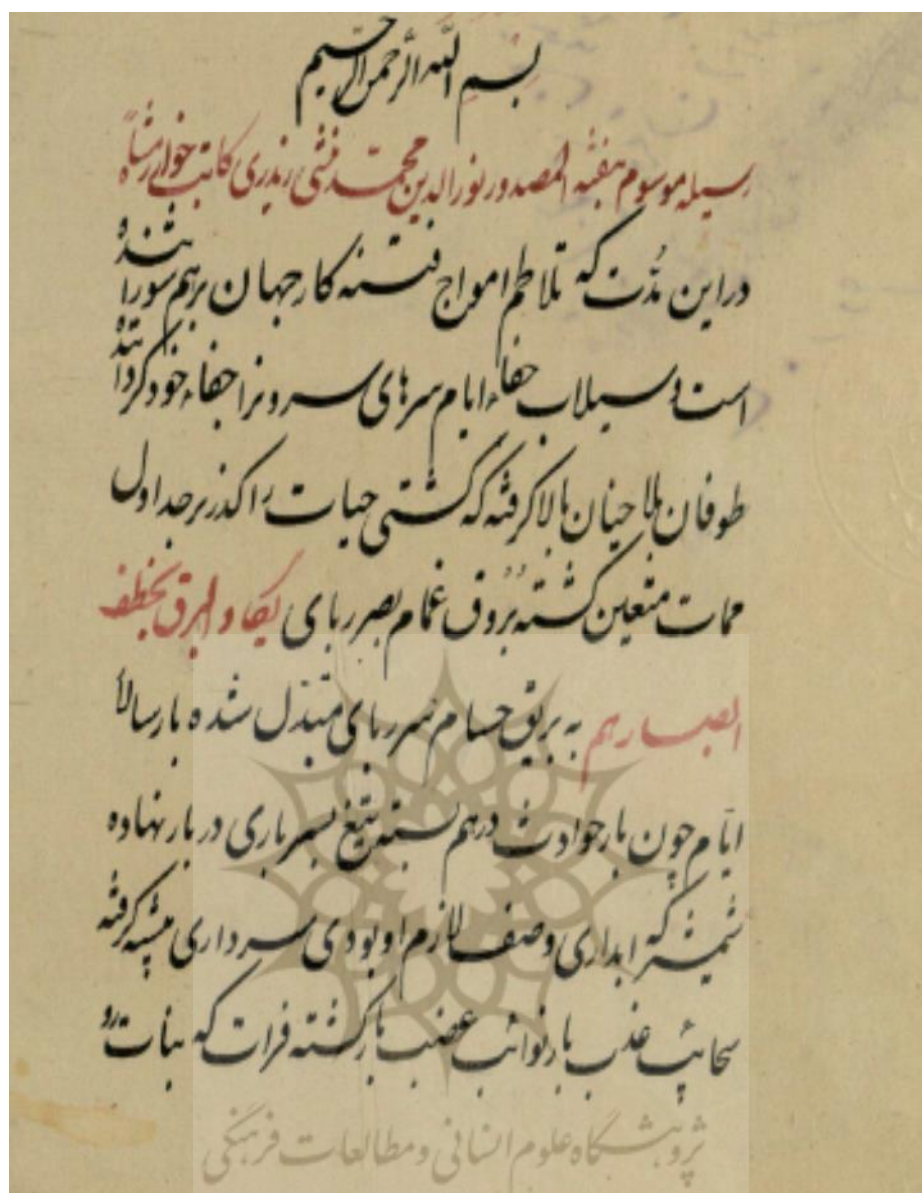 بسم الله الرحمن الرحیم
رسیله موسوم بنفثة المصدور نورالدین محمد منشی زیدری کاتب خوارزمشاه
دراین مدّت که تلاطم امواج فتنه کار جهان برهم شورانیده
است و سیلاب جفاء ایام سرهای سرورانرا جفاء خود گردانیده
طوفان بلا چنان بالا گرفته که کشتی حیات را گذر بر جداول
ممات متعین گشته بروق غمام بصر ربای یکاد البرق یخطف
ابصارهم به بریق حسام سرربای متبدّل شده بارسالار
ایّام چون بار حوادث درهم بسته تیغ بسرباری در بار نهاده
شمشیر که ابداری وصف لازم او بودی سرداری پیشه گرفته
سحایب عذب بار نوائب عضب بار گشته فرات که نبات رو
پژوهشگاه علوم انسانی و مطالعات فرهنگی